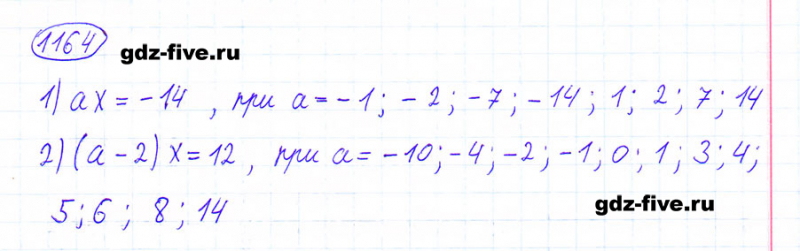 1164
gdz-five.ru
1) ax = -14 , при a = -1; -2; -7; -14; 1; 2; 7; 14
2) (a - 2) x = 12 , при a = -10; -4; -2; -1; 0; 1; 3; 4;
5; 6; 8; 14
gdz-five.ru